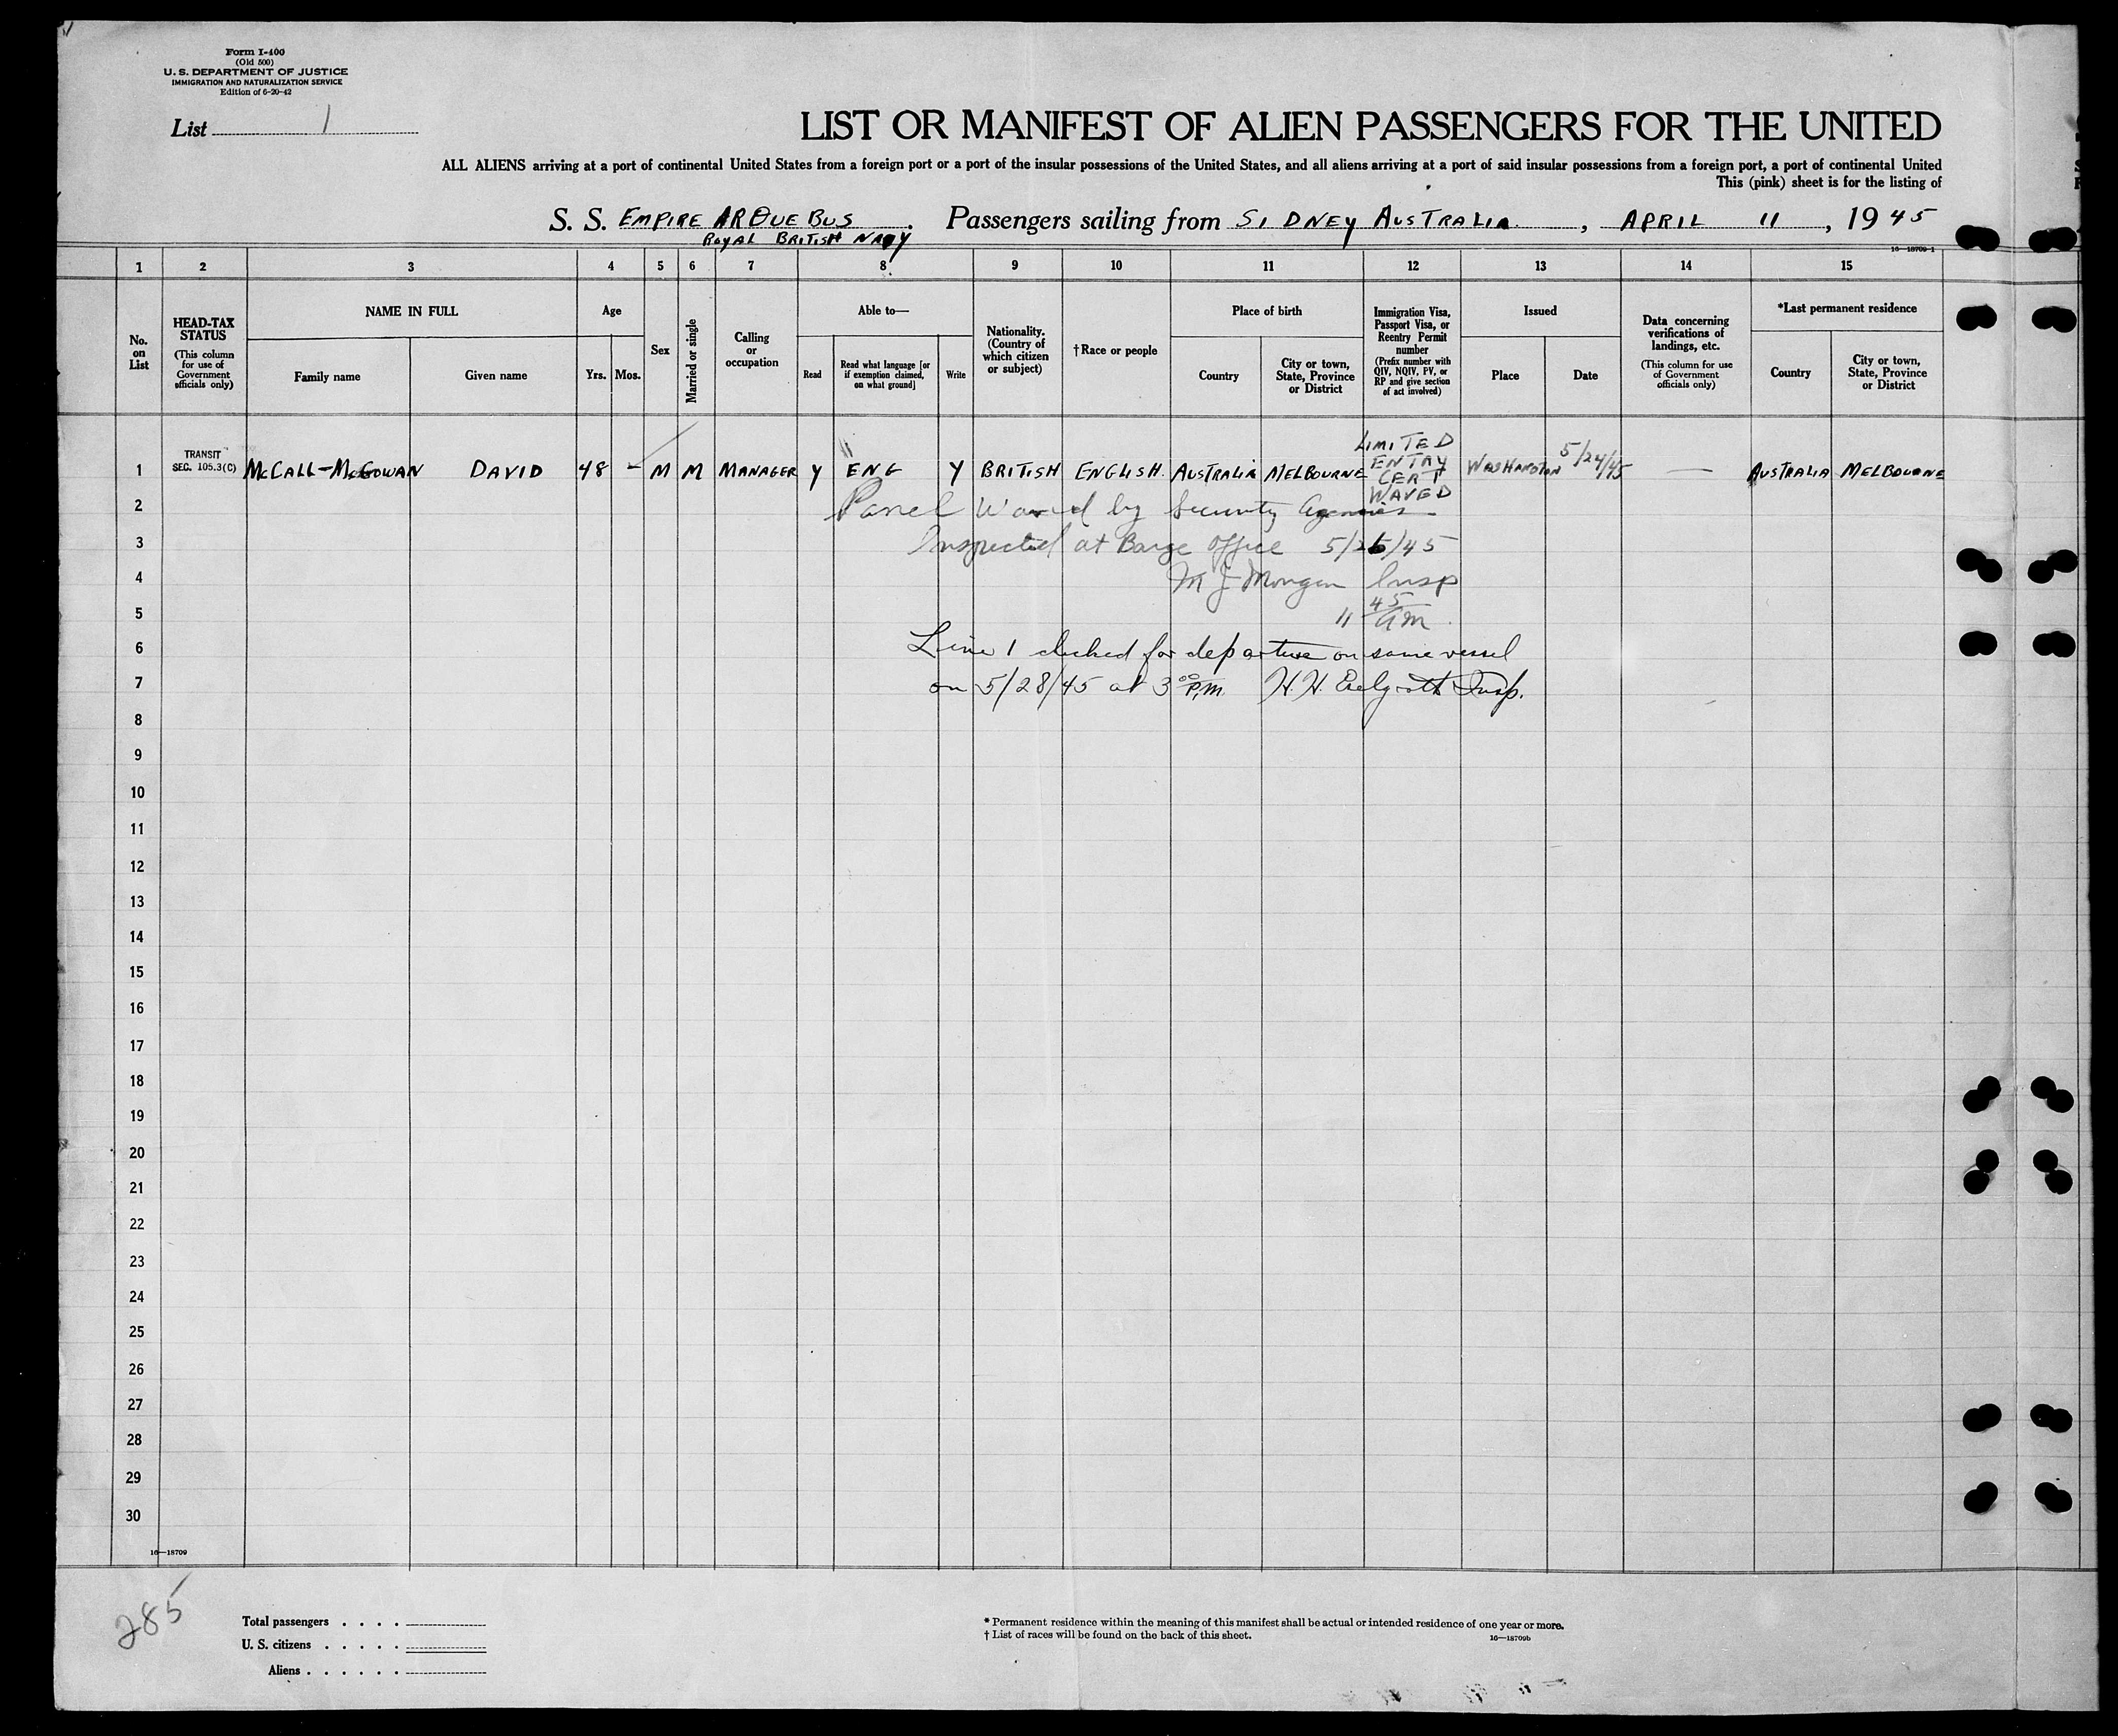 Form I-400
(Old 500)
U. S. DEPARTMENT OF JUSTICE
IMMIGRATION AND NATURALIZATION SERVICE
Edition of 6-20-42
List 1
LIST OR MANIFEST OF ALIEN PASSENGERS FOR THE UNITED
ALL ALIENS arriving at a port of continental United States from a foreign port or a port of the insular possessions of the United States, and all aliens arriving at a port of said insular possessions from a foreign port, a port of continental United
This (pink) sheet is for the listing of
S. S. EMPIRE ARQUEBUS. Passengers sailing from SIDNEY AUSTRALIA, APRIL 11, 1945
ROYAL BRITISH NAVY
16—18709-1
1 2 3 4 5 6 7 8 9 10 11 12 13 14 15
No. on List
HEAD-TAX STATUS
(This column for use of Government officials only)
NAME IN FULL
Family name
Given name
Age
Yrs.
Mos.
Sex
Married or single
Calling or occupation
Able to—
Read
Read what language [or if exemption claimed, on what ground]
Write
Nationality. (Country of which citizen or subject)
†Race or people
Place of birth
Country
City or town, State, Province or District
Immigration Visa, Passport Visa, or Reentry Permit number
(Prefix number with QIV, NQIV, PV, or RP and give section of act involved)
Issued
Place
Date
Data concerning verifications of landings, etc.
(This column for use of Government officials only)
*Last permanent residence
Country
City or town, State, Province or District
1 TRANSIT SEC. 105.3(C) McCALL-McGOWAN DAVID 48 - M M MANAGER Y ENG Y BRITISH ENGLISH AUSTRALIA MELBOURNE LIMITED ENTRY CERT WAVED WASHINGTON 5/24/45 — AUSTRALIA MELBOURNE
2 Panel Waved by Security Agencies
3 Inspected at Barge Office 5/26/45
4 M J Mongan Insp
5 11 45 am
6 Line 1 checked for departure on same vessel
7 on 5/28/45 at 3 00 P.M. H.H. Insp.
8
9
10
11
12
13
14
15
16
17
18
19
20
21
22
23
24
25
26
27
28
29
30
16—18709
285
Total passengers . . . .
U. S. citizens . . . . .
Aliens . . . . . .
* Permanent residence within the meaning of this manifest shall be actual or intended residence of one year or more.
† List of races will be found on the back of this sheet.
16—18709b